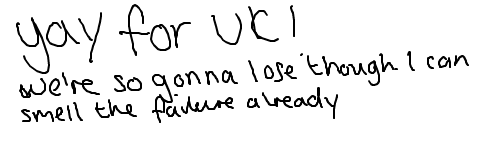 yay for UK!
we're so gonna lose though I can
smell the failure already